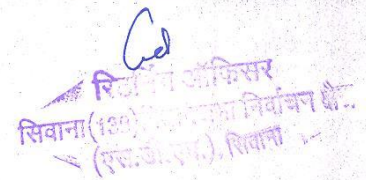 रिटर्निंग ऑफिसर
सिवाना(132) विधानसभा निर्वाचन क्षेत्र
(एस.डी.एम.), सिवाना